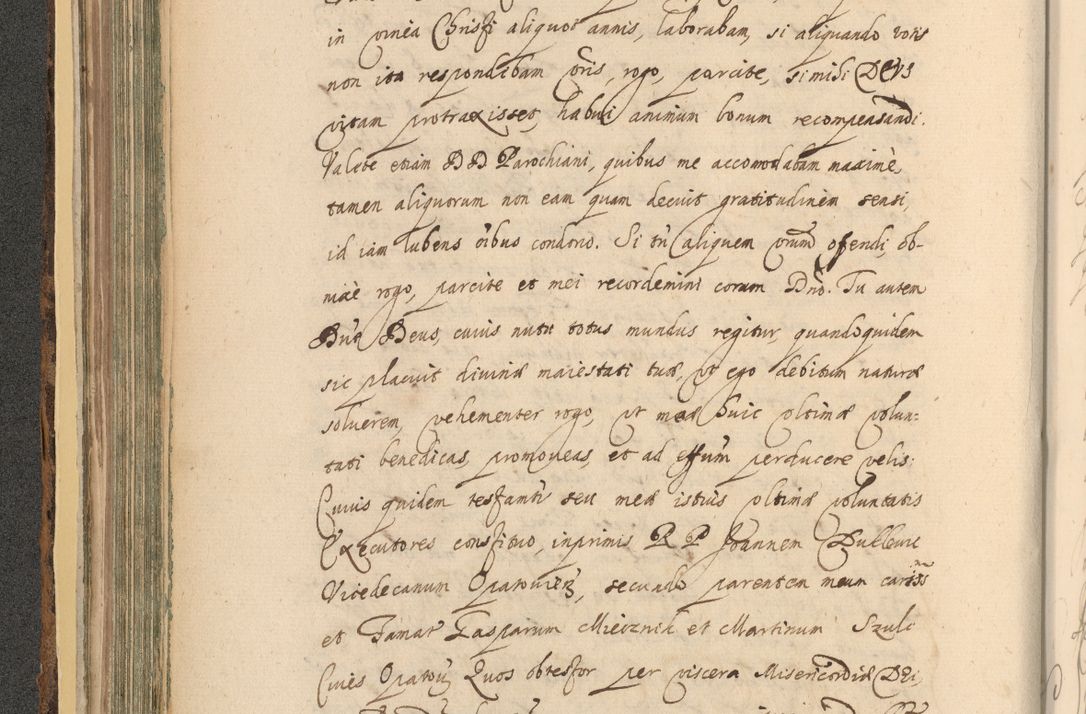 in vinea Christi aliquot annis, laborabam, si aliquando votis
non ita respondebam v̄ris, rogo, parcite, si mihi DEVS
vitam protraxisset, habui animum bonum recompensandi.
Valete etiam DD Parochiani, quibus me accomodabam maximè,
tamen aliquorum non eam quam decuit gratitudinem sensi,
id iam lubens oībus condono. Si tn̄ aliquem v̄rum offendi, ob-
nixè rogo, parcite et mei recordemini coram Dn̄o. Tu autem
Dn̄e Deus, cuius nutu totus mundus regitur, quandoquidem
sic placuit divinæ maiestati tuæ, ut ego debitum naturæ
soluerem, vehementer rogo, ut meæ huic ultimæ volun=
tati benedicas, promoveas, et ad effūm perducere velis.
Cuius quidem testamti seu meæ istius ultimæ voluntatis
Executores constituo, inprimis R P Joannem
Vicedecanum Opatovien̄, secundo parentem meum cariss
et Famat Gasparum Miecznik et Martinum Szulc
Cives Opatov̄ Quos obtestor per viscera Misericordiæ DEi,